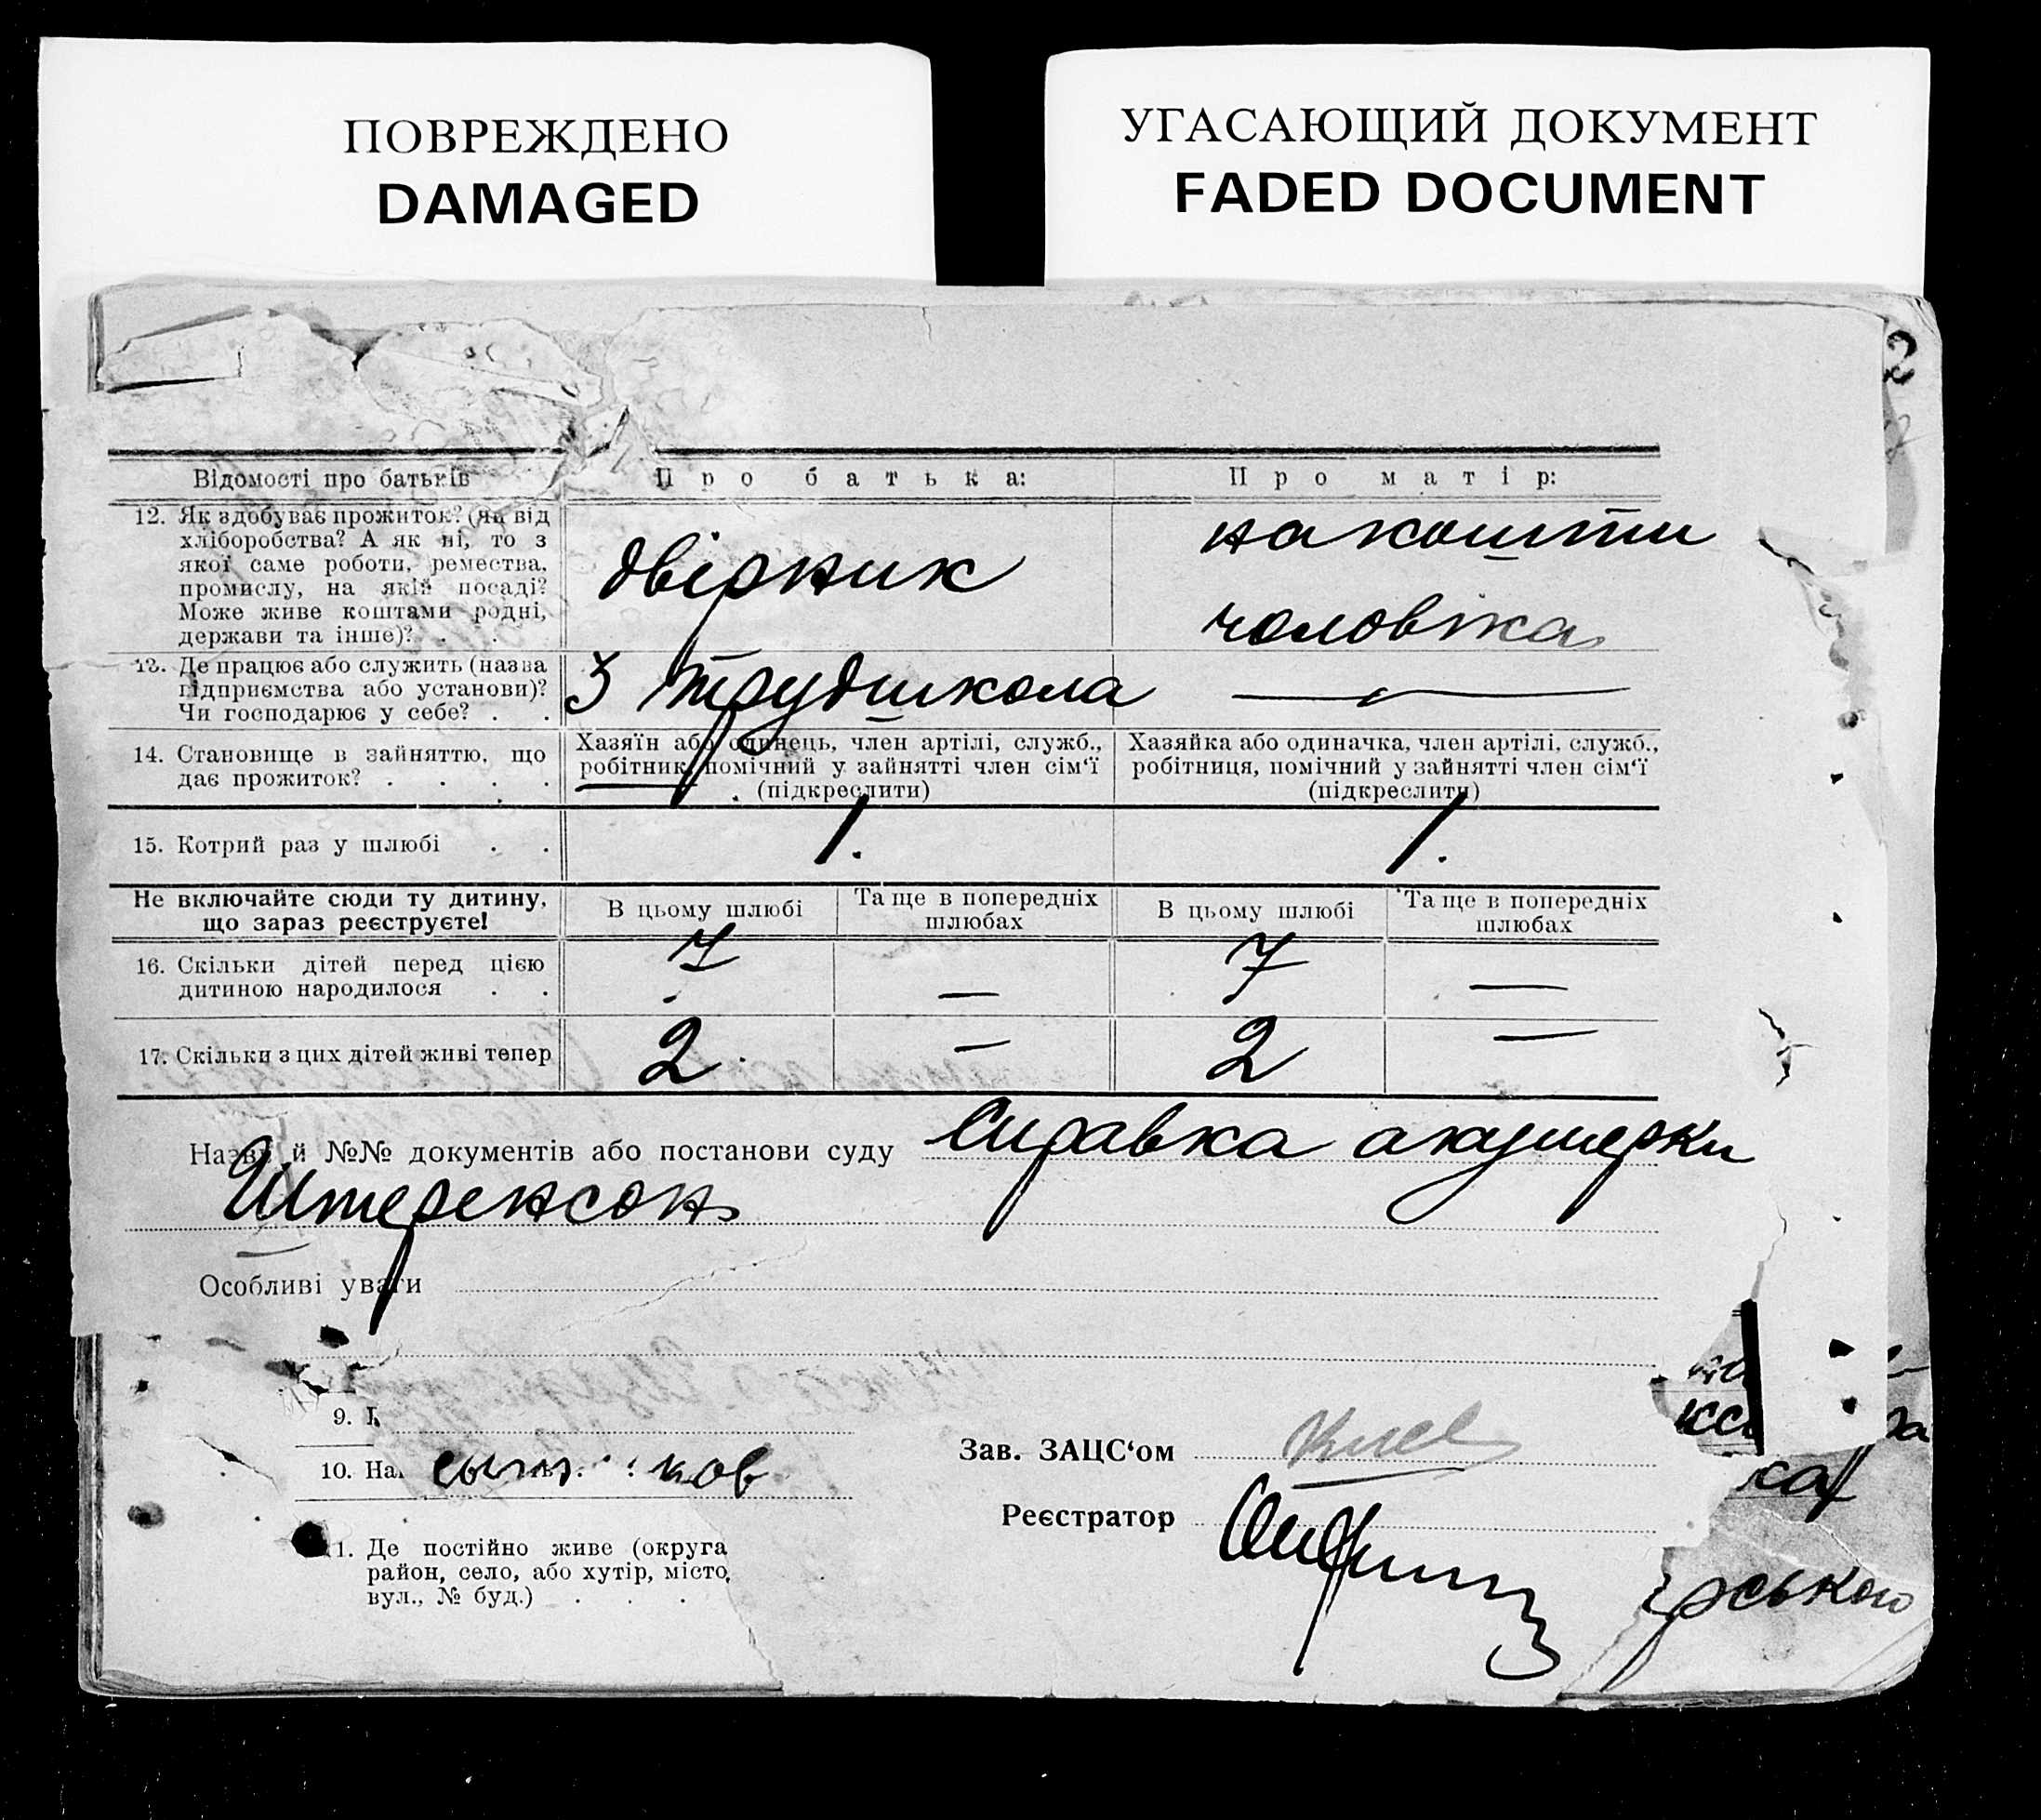 ПОВРЕЖДЕНО
DAMAGED
УГАСАЮЩИЙ ДОКУМЕНТ
FADED DOCUMENT
2
Відомості про батьків
Про батька:
Про матір:
12. Як здобуває прожиток? (як від
хліборобства? А як ні, то з
якої саме роботи, ремества,
промислу, на якій посаді?
Може живе коштами родні,
держави та інше)? . .
двірник
на кошти
чоловіка
13. Де працює або служить (назва
підприємства або установи)?
Чи господарює у себе? . .
3 трудшкола
—
14. Становище в зайняттю, що
дає прожиток? . . . .
Хазяїн або одинець, член артілі, служб.,
робітник, помічний у зайнятті член сім‘ї
(підкреслити)
Хазяйка або одиначка, член артілі, служб.,
робітниця, помічний у зайнятті член сім‘ї
(підкреслити)
15. Котрий раз у шлюбі . .
1.
1.
Не включайте сюди ту дитину,
що зараз реєструєте!
В цьому шлюбі
Та ще в попередніх
шлюбах
В цьому шлюбі
Та ще в попередніх
шлюбах
16. Скільки дітей перед цією
дитиною народилося . .
7
—
7
—
17. Скільки з цих дітей живі тепер
2
—
2
—
Назви й №№ документів або постанови суду Справка акушерки
Штеренсон
Особливі уваги
9.
10. На
ков
Зав. ЗАЦС‘ом
Реєстратор
11. Де постійно живе (округа
район, село, або хутір, місто,
вул., № буд.) . . .
ка
рською